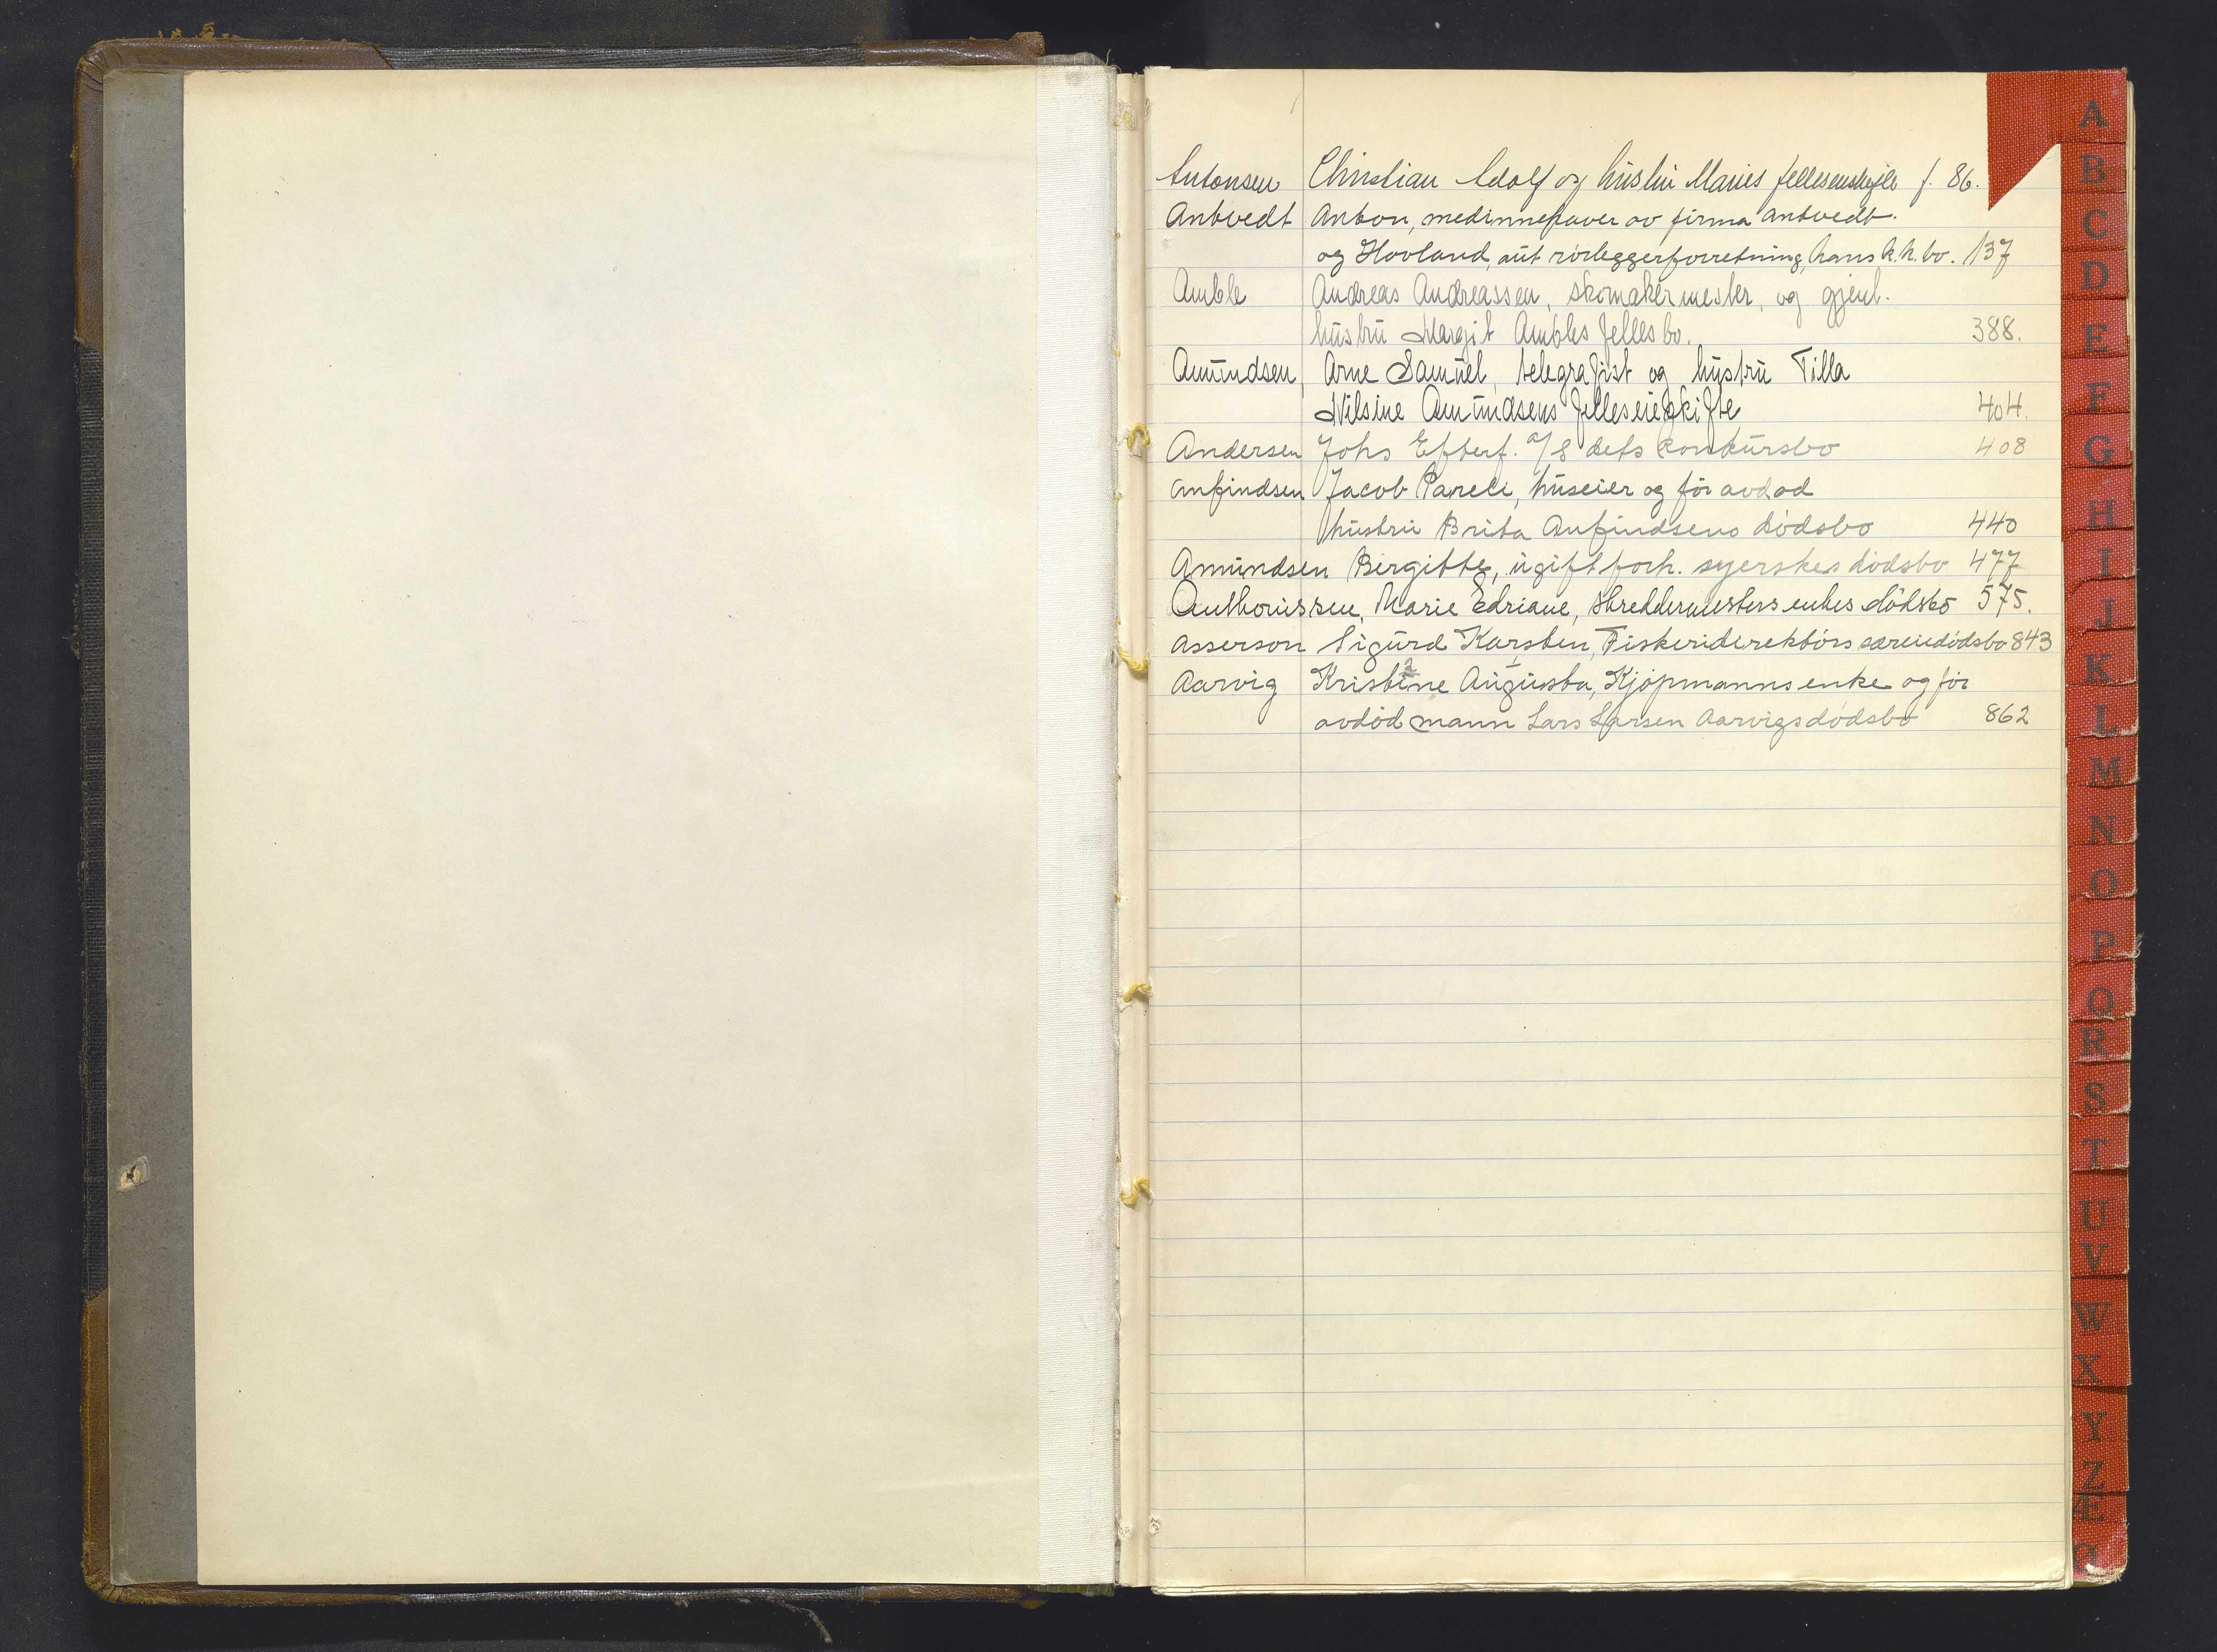 Antonsen Christian Adolf og hustru Maries fellesenskifte f. 86.
Antvedt Anton, medinnehaver av firma Antvedt
og Hovland, aut rørleggerforretning, hans k.k. bo. 137
Amble Andreas Andreassen, skomakermester, og gjenl.
hustru Margit Ambles fellesbo. 388.
Amundsen, Arne Samuel, telegrafist og hustru Tilla
Nilsine Amundsens felleseieskifte 404.
Andersen Johs Efterf. A/S dets konkursbo 408
Anfindsen Jacob Pareli, huseier og før avdød
hustru Brita Anfindsens dødsbo 440
Amundsen Birgitte, ugift forh. syerskes dødsbo 477
Anthonissen, Marie Edriane, skreddermesters enkes dødsbo 575.
Asserson Sigurd Karsten, Fiskeridirektørs særeiedødsbo 843
Aarvig Kristine Augusta, Kjøpmanns enke og før
avdød mann Lars Larsen Aarvigs dødsbo 862
A
B
C
D
E
F
G
H
I
J
K
L
M
N
O
P
Q
R
S
T
U
V
W
X
Y
Z
Æ